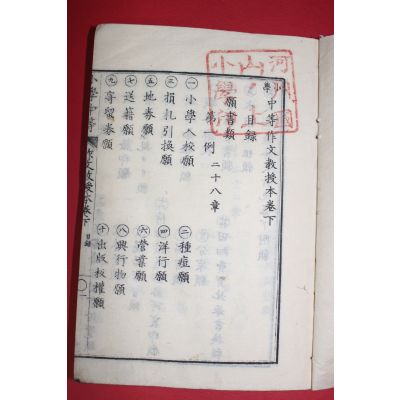 小學中等作文教授本卷下
目錄
願書類
第一例 二十八章
㊀小學入校願 ㊁種痘願
㊂損札引換願 ㊃洋行願
㊄地券願 ㊅營業願
㊆送籍願 ㊇興行物願
㊈寄留券願 ㊉出版板權願
小學中等 作文教授本卷下 目錄